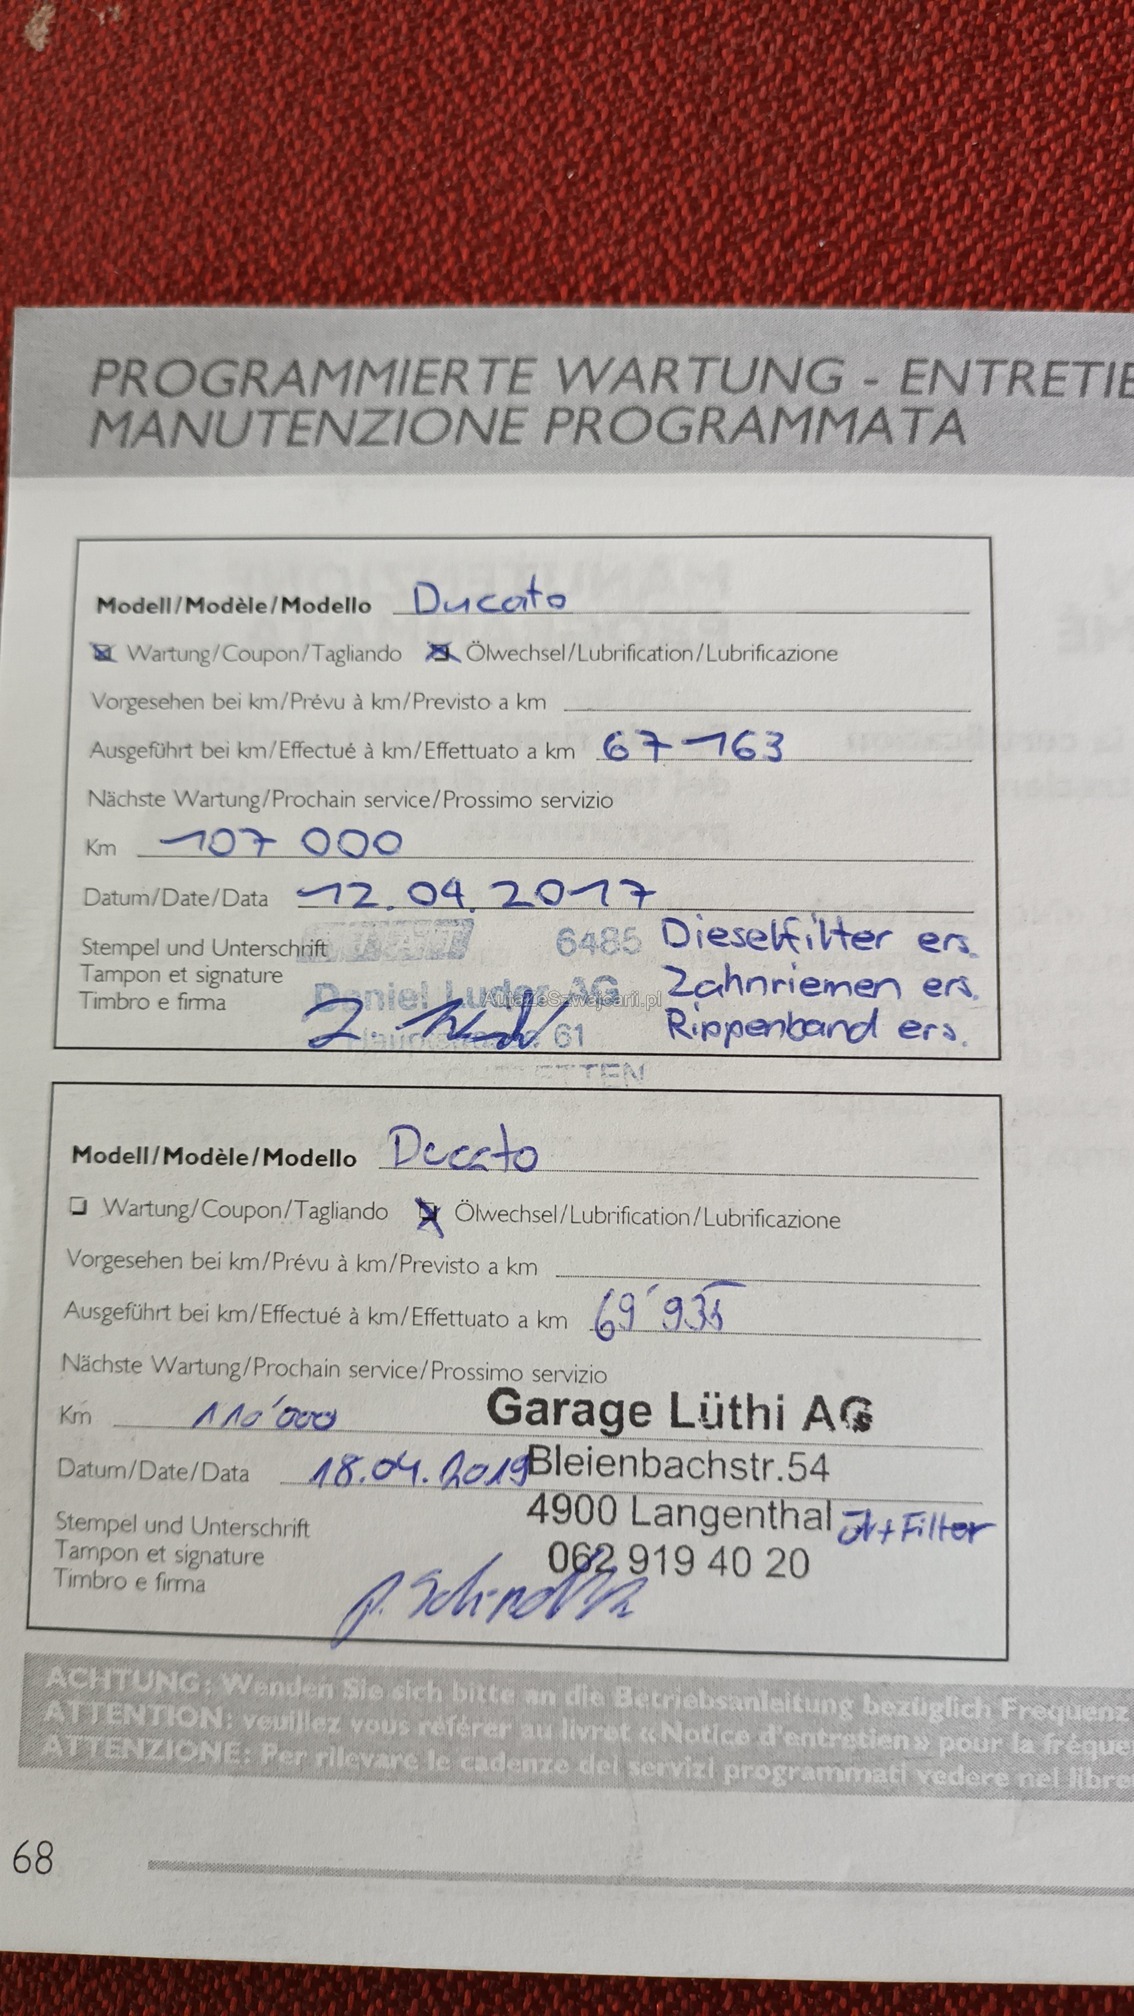 PROGRAMMIERTE WARTUNG - ENTRETIE
MANUTENZIONE PROGRAMMATA
Modell/Modèle/Modello Ducato
Wartung/Coupon/Tagliando Ölwechsel/Lubrification/Lubrificazione
Vorgesehen bei km/Prévu à km/Previsto a km
Ausgeführt bei km/Effectué à km/Effettuato a km 67 163
Nächste Wartung/Prochain service/Prossimo servizio
Km 107 000
Datum/Date/Data 12.04.2017
Stempel und Unterschrift 6485 Dieselfilter ers.
Tampon et signature Daniel Luder AG Zahnriemen ers.
AutazeSzwajcarii.pl
Timbro e firma 61 Rippenband ers.
Modell/Modèle/Modello Ducato
Wartung/Coupon/Tagliando Ölwechsel/Lubrification/Lubrificazione
Vorgesehen bei km/Prévu à km/Previsto a km
Ausgeführt bei km/Effectué à km/Effettuato a km 69'935
Nächste Wartung/Prochain service/Prossimo servizio
Garage Lüthi AG
Km 110'000
Datum/Date/Data 18.04.2019 Bleienbachstr.54
4900 Langenthal Öl+Filter
Stempel und Unterschrift
Tampon et signature 062 919 40 20
Timbro e firma
ACHTUNG: Wenden Sie sich bitte an die Betriebsanleitung bezüglich Frequenz
ATTENTION: veuillez vous référer au livret «Notice d'entretien» pour la fréque
ATTENZIONE: Per rilevare le cadenze dei servizi programmati vedere nel libre
68